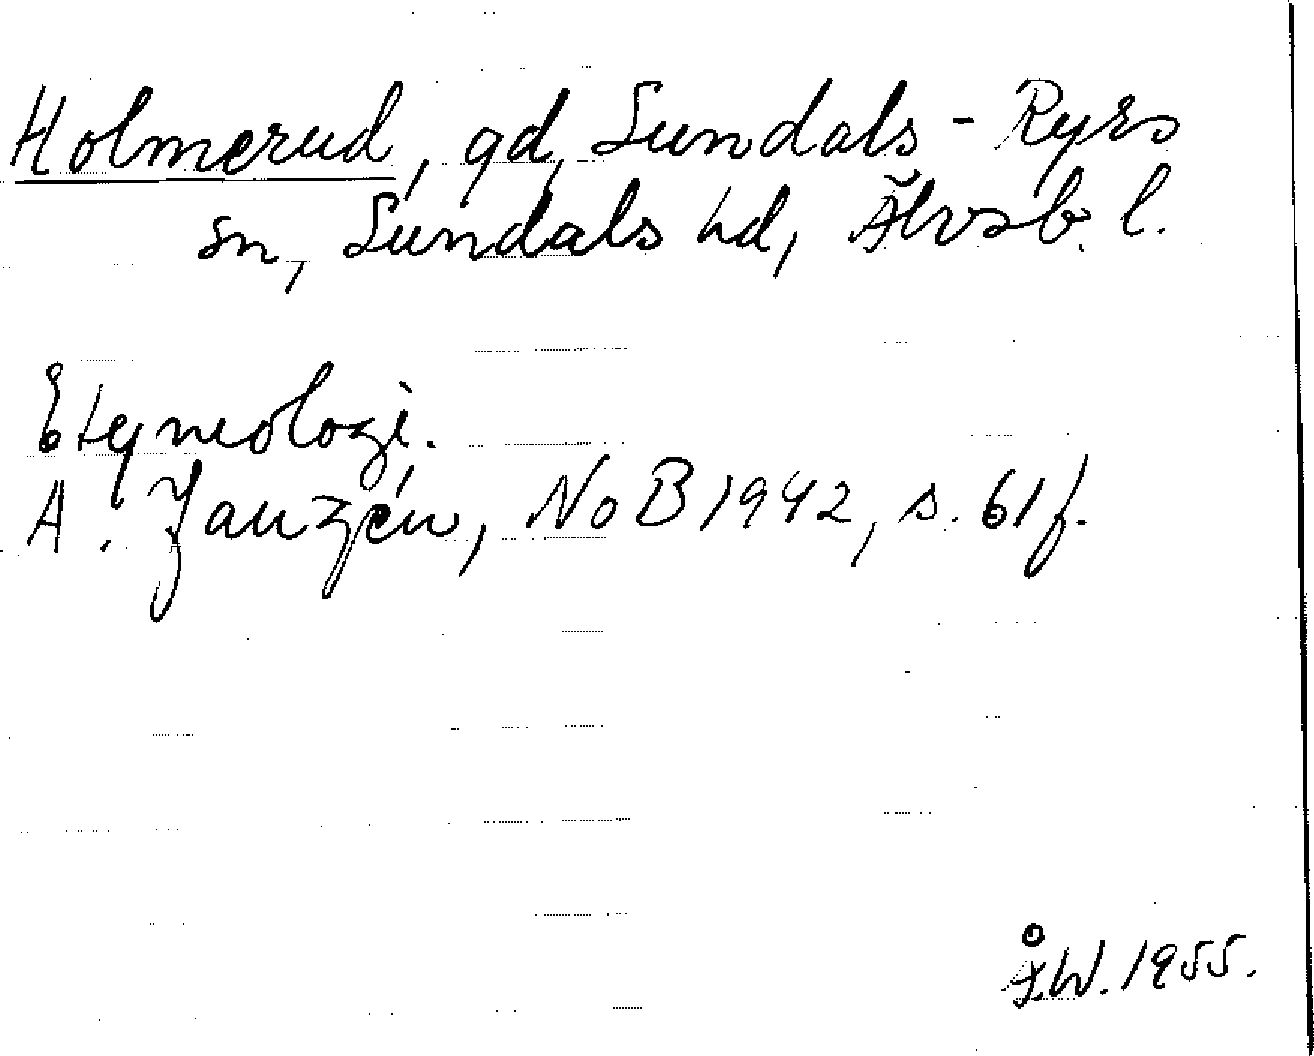 Holmerud, gd, Sundals-Ryrs
sn, Sundals hd, Älvsb. l.
Etymologi.
A. Janzén, NoB 1942, s. 61 f.
Å.W. 1955.